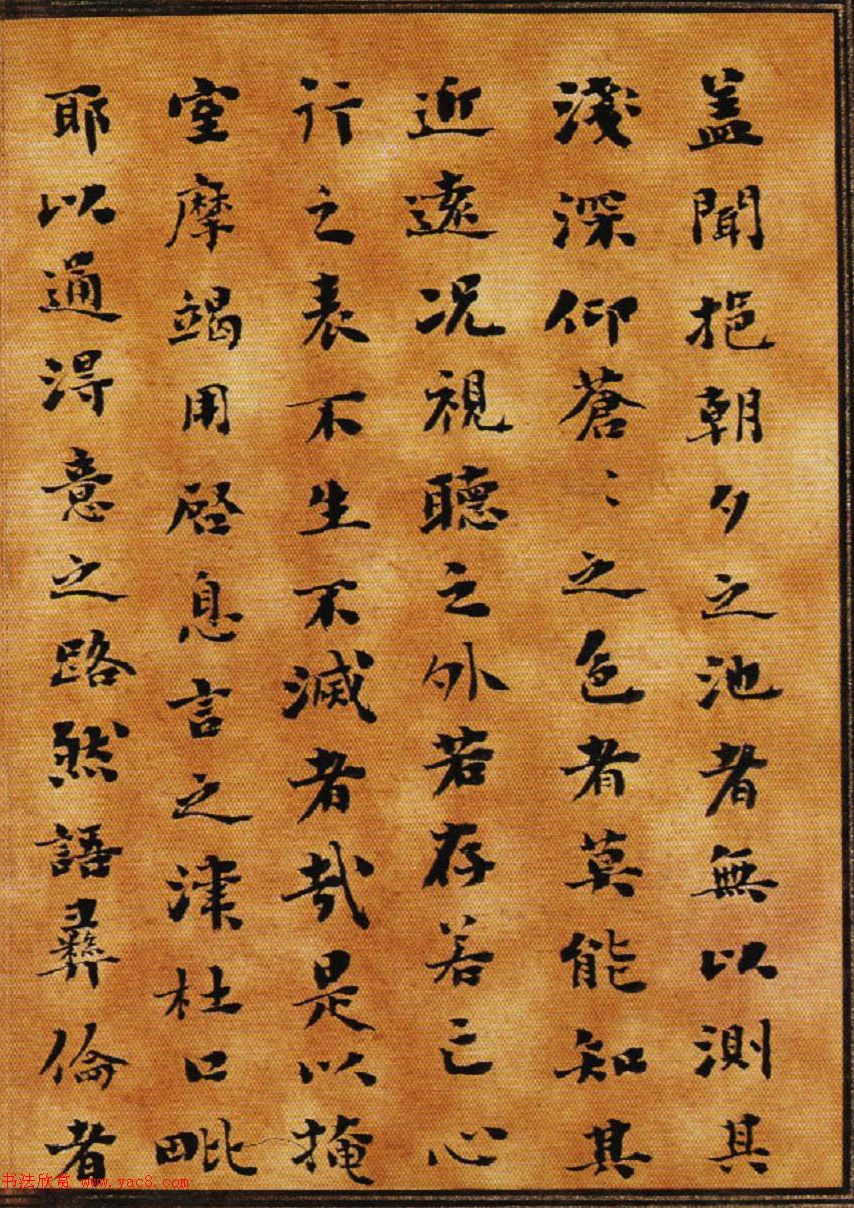 盖聞挹朝夕之池者無以測其
淺深仰蒼〻之色者莫能知其
近遠況視聽之外若存若亡心
行之表不生不滅者哉是以掩
室摩竭用啓息言之津杜口毗
耶以通淂意之路然語彝倫者
书法欣赏 www.yac8.com